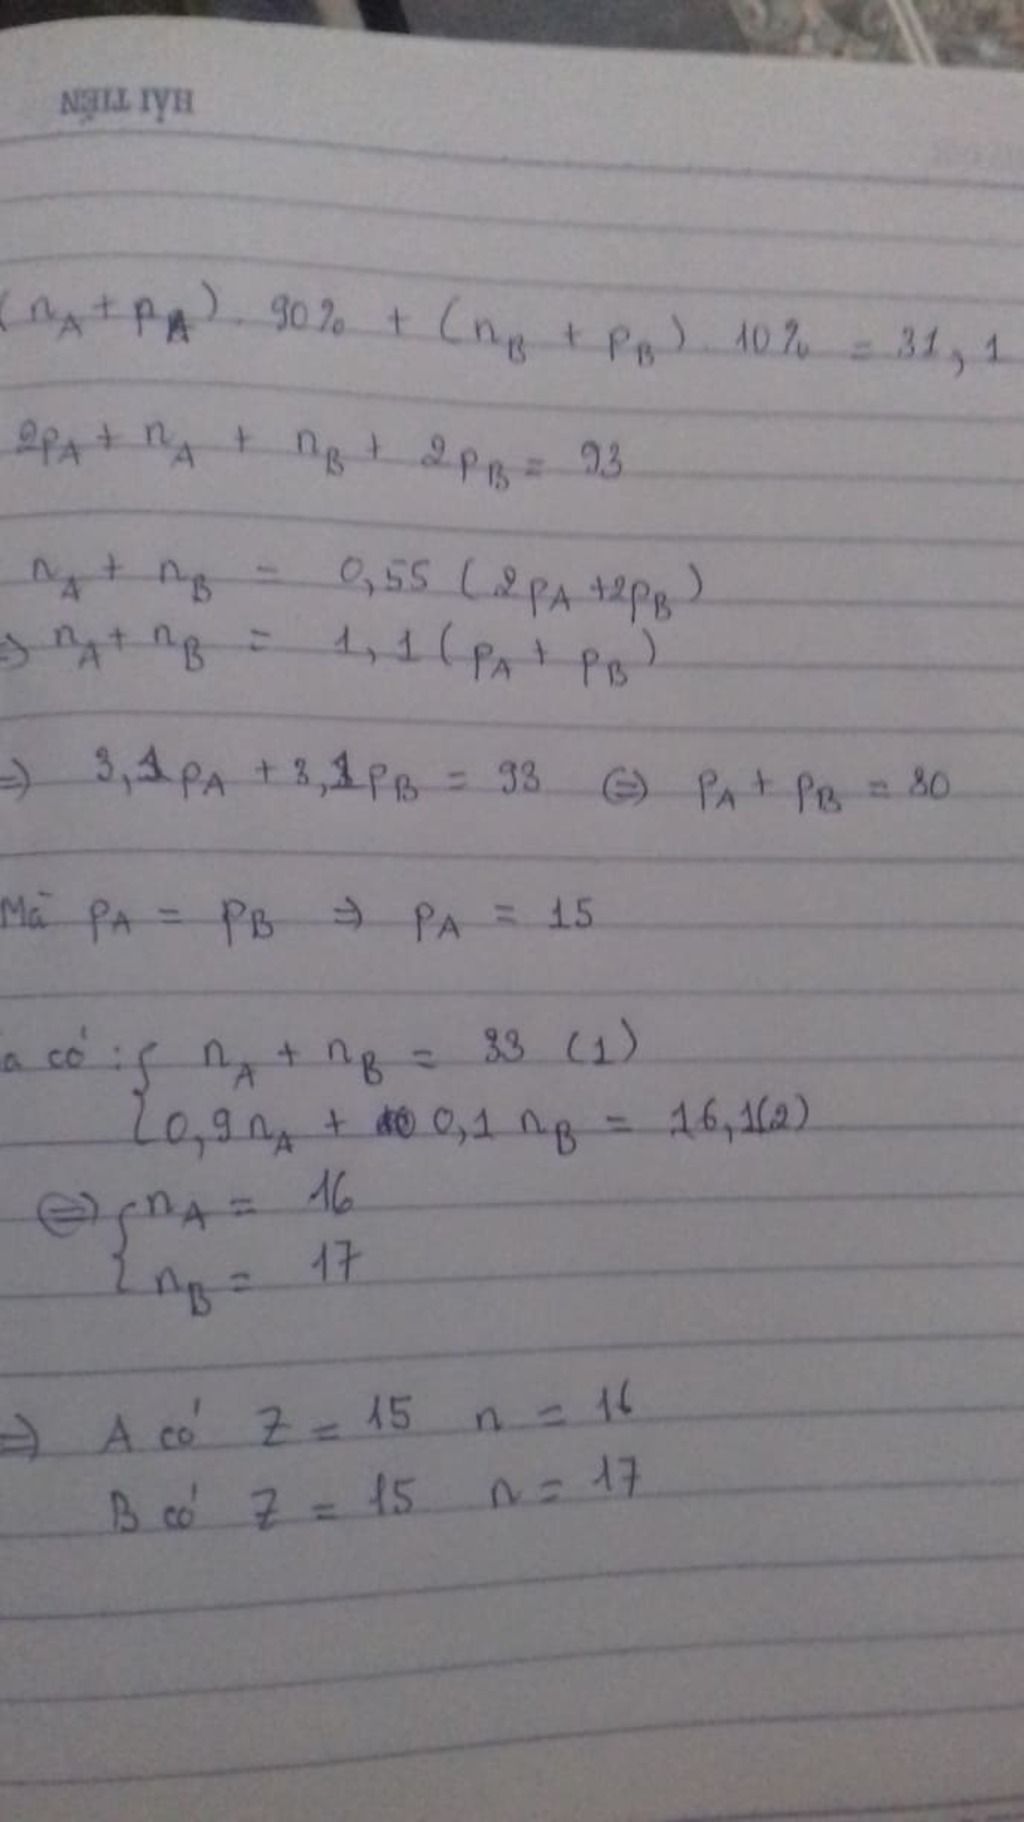 HẢI TIẾN
(n_A + p_A). 90% + (n_B + p_B). 10% = 31,1
2p_A + n_A + n_B + 2p_B = 93
n_A + n_B = 0,55 (2p_A + 2p_B)
=> n_A + n_B = 1,1 (p_A + p_B)
=> 3,1p_A + 3,1p_B = 93 <=> p_A + p_B = 30
Mà p_A = p_B => p_A = 15
a có : { n_A + n_B = 33 (1)
{ 0,9n_A + 0,1 n_B = 16,1(2)
<=> { n_A = 16
{ n_B = 17
=> A có Z = 15 n = 16
B có Z = 15 n = 17